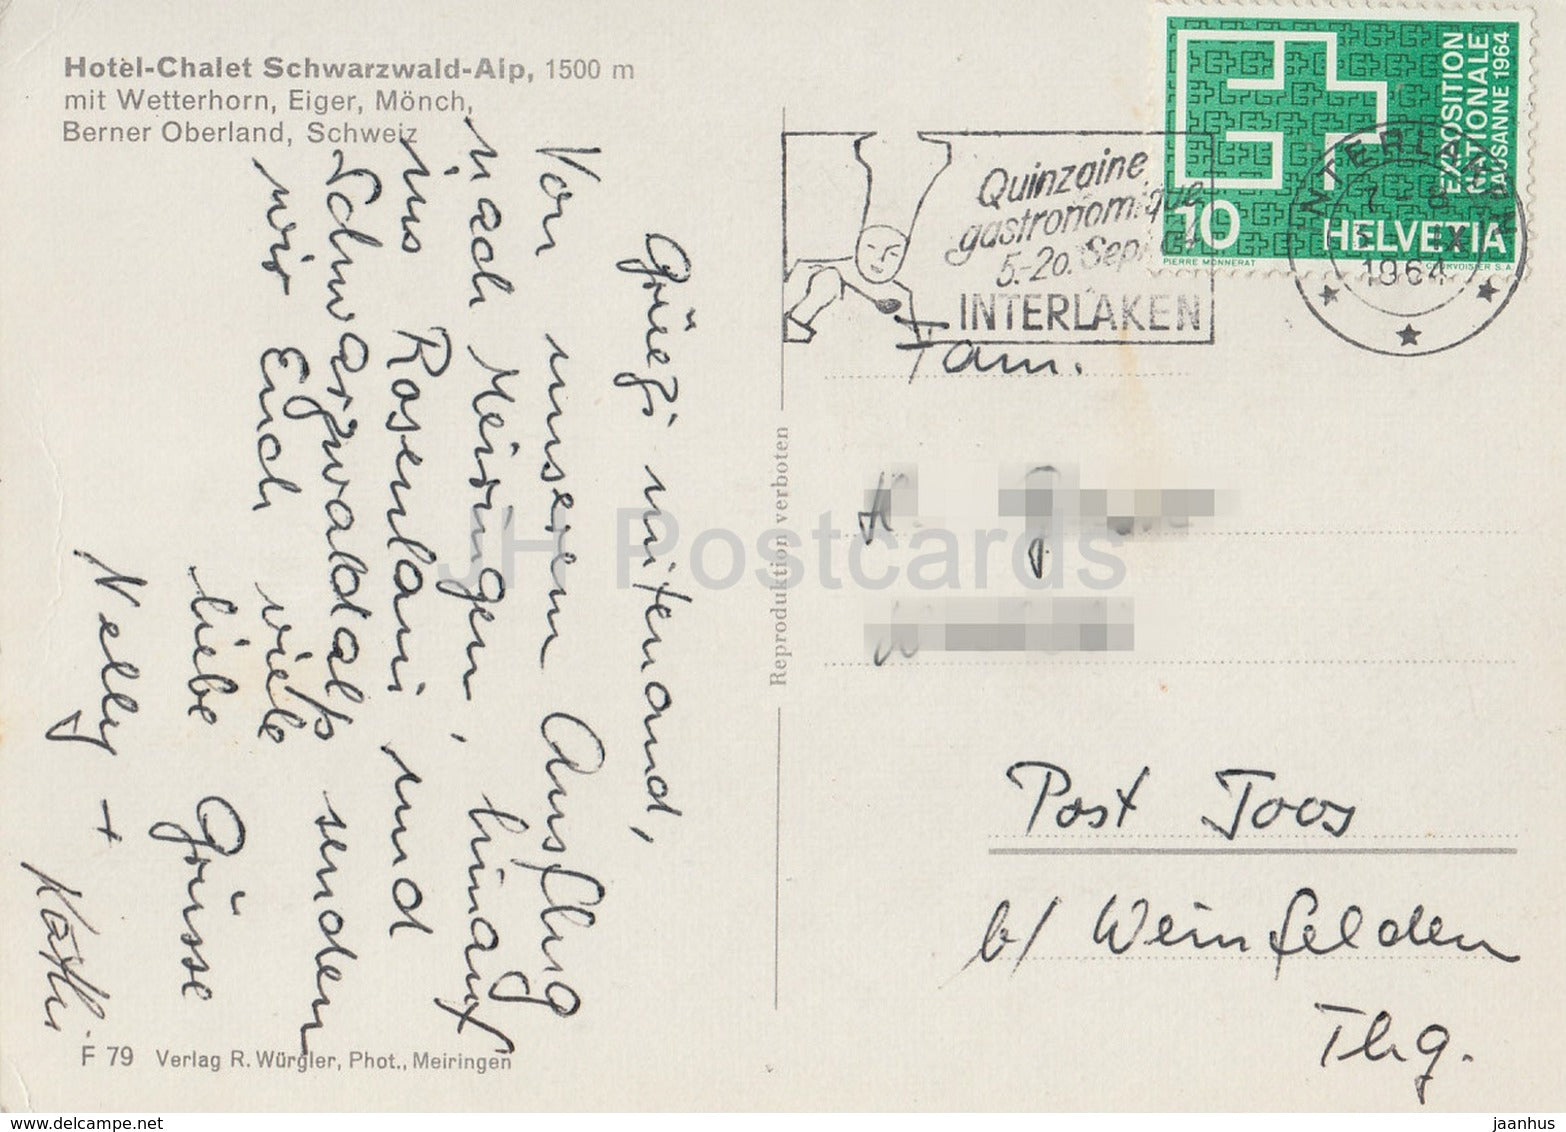 Hotel-Chalet Schwarzwald-Alp, 1500 m
mit Wetterhorn, Eiger, Mönch,
Berner Oberland, Schweiz
Grüezi mitenand,
Von unserem Ausflug
nach Meiringen, hinauf
ins Rosenlaui und
Schwarzwaldalp senden
wir Euch viele
liebe Grüsse
Nelly + Käthi
F 79 Verlag R. Würgler, Phot., Meiringen
Reproduktion verboten
Quinzaine
gastronomique
5.-20. Sept.
INTERLAKEN
EXPOSITION
NATIONALE
LAUSANNE 1964
10
HELVETIA
PIERRE MONNERAT
COURVOISIER S.A.
INTERLAKEN
IX
1964
Fam.
Post Toos
b/ Weinfelden
Thg.
JH Postcards
delcampe.net
jaanhus